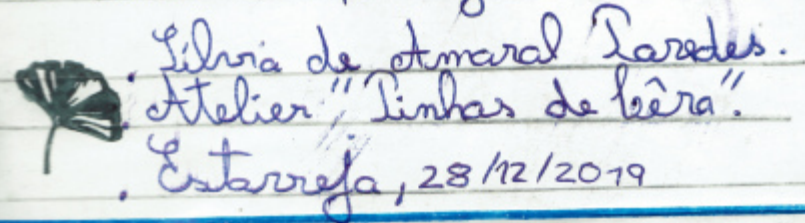 . Sílvia de Amaral Paredes.
. Atelier "Linhas de Cêra".
. Estarreja, 28/12/2019